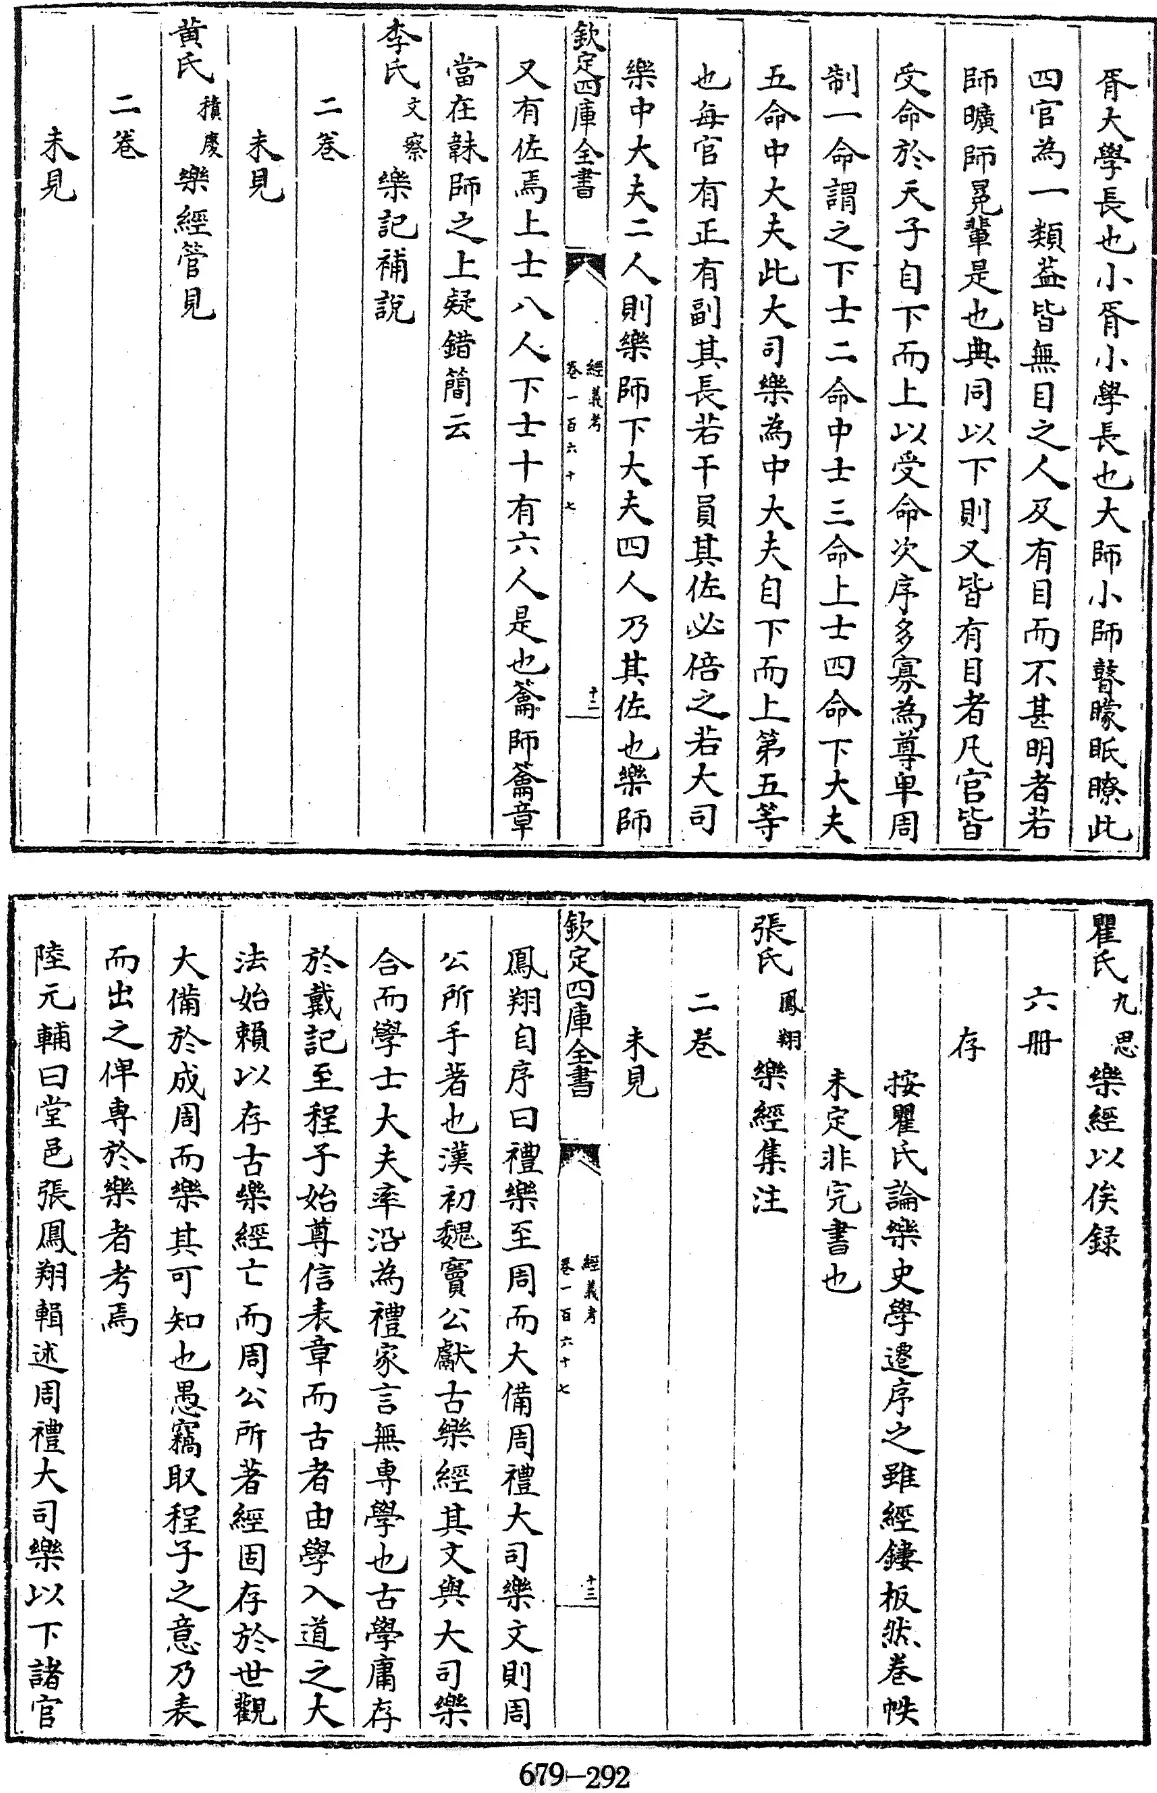 胥大學長也小胥小學長也大師小師瞽矇眂瞭此
四官為一類葢皆無目之人及有目而不甚明者若
師曠師冕輩是也典同以下則又皆有目者凡官皆
受命於天子自下而上以受命次序多寡為尊卑周
制一命謂之下士二命中士三命上士四命下大夫
五命中大夫此大司樂為中大夫自下而上第五等
也每官有正有副其長若干員其佐必倍之若大司
樂中大夫二人則樂師下大夫四人乃其佐也樂師
欽定四庫全書
經義考
卷一百六十七
十二
又有佐焉上士八人下士十有六人是也籥師籥章
當在韎師之上疑錯簡云
李氏文察樂記補說
二卷
未見
黄氏積慶樂經管見
二卷
未見
瞿氏九思樂經以俟録
六册
存
按瞿氏論樂史學遷序之雖經鏤板然卷帙
未定非完書也
張氏鳳翔樂經集注
二卷
未見
欽定四庫全書
經義考
卷一百六十七
十三
鳳翔自序曰禮樂至周而大備周禮大司樂文則周
公所手著也漢初魏竇公獻古樂經其文與大司樂
合而學士大夫率沿為禮家言無專學也古學庸存
於戴記至程子始尊信表章而古者由學入道之大
法始賴以存古樂經亡而周公所著經固存於世觀
大備於成周而樂其可知也愚竊取程子之意乃表
而出之俾専於樂者考焉
陸元輔曰堂邑張鳳翔輯述周禮大司樂以下諸官
679-292